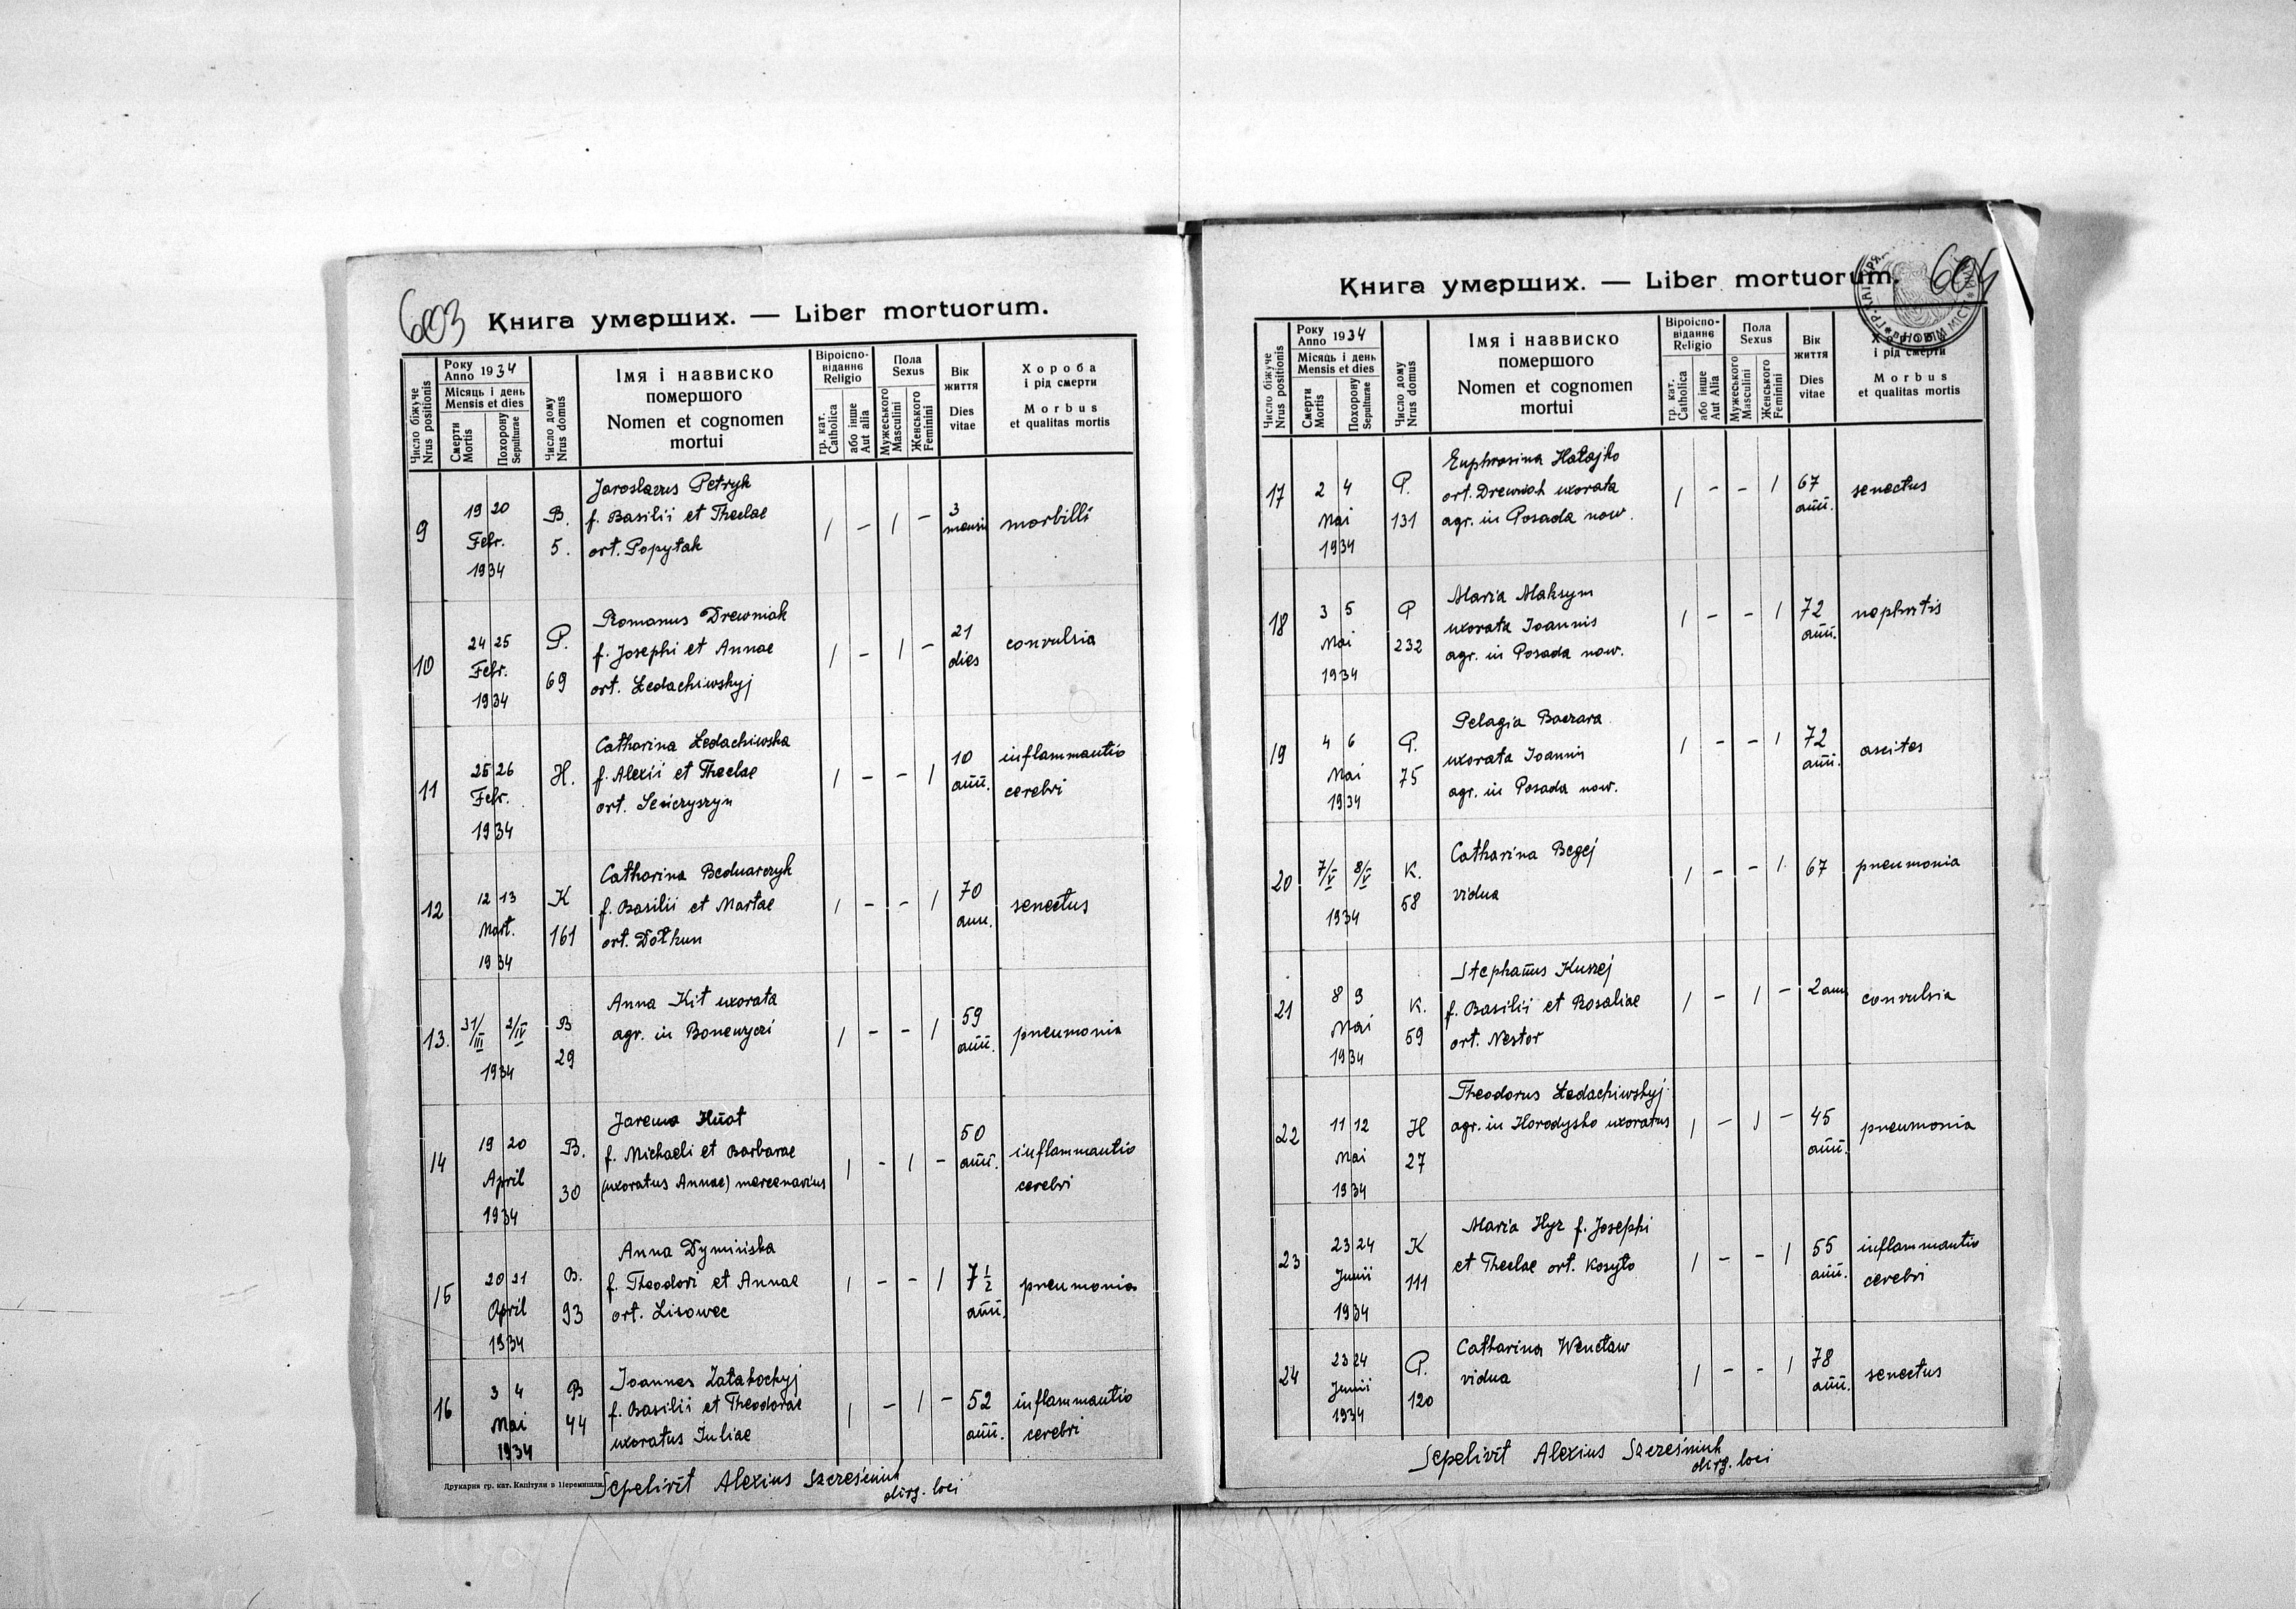 603
Книга умерших. — Liber mortuorum.
Число біжуче
Nrus positionis
Року
Anno 1934
Місяць і день
Mensis et dies
Смерти
Mortis
Похорону
Sepulturae
Число дому
Nrus domus
Імя і назвиско
помершого
Nomen et cognomen
mortui
Віроіспо-
віданнє
Religio
гр. кат.
Catholica
або інше
Aut alia
Пола
Sexus
Мужеського
Masculini
Женського
Feminini
Вік
життя
Dies
vitae
Хороба
і рід смерти
Morbus
et qualitas mortis
9 19 20 Febr. 1934 B. 5.
Jaroslavus Petryk
f. Basilii et Theclae
ort. Popytak
/ - / - 3 mensis morbilli
10 24 25 Febr. 1934 P. 69
Romanus Drewniak
f. Josephi et Annae
ort. Łedachiwskyj
/ - / - 21 dies convulsia
11 25 26 Febr. 1934 H.
Catharina Łedachiwska
f. Alexii et Theclae
ort. Seńczyszyn
/ - - / 10 anni. inflammatio
cerebri
12 12 13 Mart. 1934 K 161
Catharina Bednarczyk
f. Basilii et Martae
ort. Dołhun
/ - - / 70 ann. senectus
13. 31/III 2/IV 1934 B 29
Anna Kit uxorata
agr. in Bonewyczi
/ - - / 59 anni. pneumonia
14 19 20 April 1934 B. 30
Jarema Hnat
f. Michaeli et Barbarae
(uxoratus Annae) mercenarius
/ - / - 50 anni. inflammatio
cerebri
15 20 21 April 1934 B. 93
Anna Dymińska
f. Theodori et Annae
ort. Lisowec
/ - - / 7 1/2 anni. pneumonia
16 3 4 Mai 1934 B 44
Joannes Załahockyj
f. Basilii et Theodorae
uxoratus Juliae
/ - / - 52 anni. inflammatio
cerebri
Друкарня гр. кат. Капітули в Перемишли.
Sepelivit Alexius Szcześniuk
dirg. loci
604
Книга умерших. — Liber mortuorum.
Число біжуче
Nrus positionis
Року
Anno 1934
Місяць і день
Mensis et dies
Смерти
Mortis
Похорону
Sepulturae
Число дому
Nrus domus
Імя і назвиско
помершого
Nomen et cognomen
mortui
Віроіспо-
віданнє
Religio
гр. кат.
Catholica
або інше
Aut Alia
Пола
Sexus
Мужеського
Masculini
Женського
Feminini
Вік
життя
Dies
vitae
Хороба
і рід смерти
Morbus
et qualitas mortis
17 2 4 Mai 1934 P. 131
Euphrosina Hałajko
ort. Drewniak uxorata
agr. in Posada now.
/ - - / 67 anni. senectus
18 3 5 Mai 1934 P 232
Maria Maksym
uxorata Joannis
agr. in Posada now.
/ - - / 72 anni. nephrtis
19 4 6 Mai 1934 P. 75
Pelagia Baczara
uxorata Joannis
agr. in Posada now.
/ - - / 72 anni. ascites
20 7/V 8/V 1934 K. 58
Catharina Begej
vidua
/ - - / 67 pneumonia
21 8 9 Mai 1934 K. 59
Stephanus Kuszej
f. Basilii et Rosaliae
ort. Nestor
/ - / - 2 ann convulsia
22 11 12 Mai 1934 H 27
Theodorus Łedachiwskyj
agr. in Horodysko uxoratus
/ - / - 45 anni. pneumonia
23 23 24 Junii 1934 K 111
Maria Hyr f. Josephi
et Theclae ort. Kosyło
/ - - / 55 anni. inflammatio
cerebri
24 23 24 Junii 1934 P. 120
Catharina Wencław
vidua
/ - - / 78 anni. senectus
Sepelivit Alexius Szcześniuk
dirg. loci